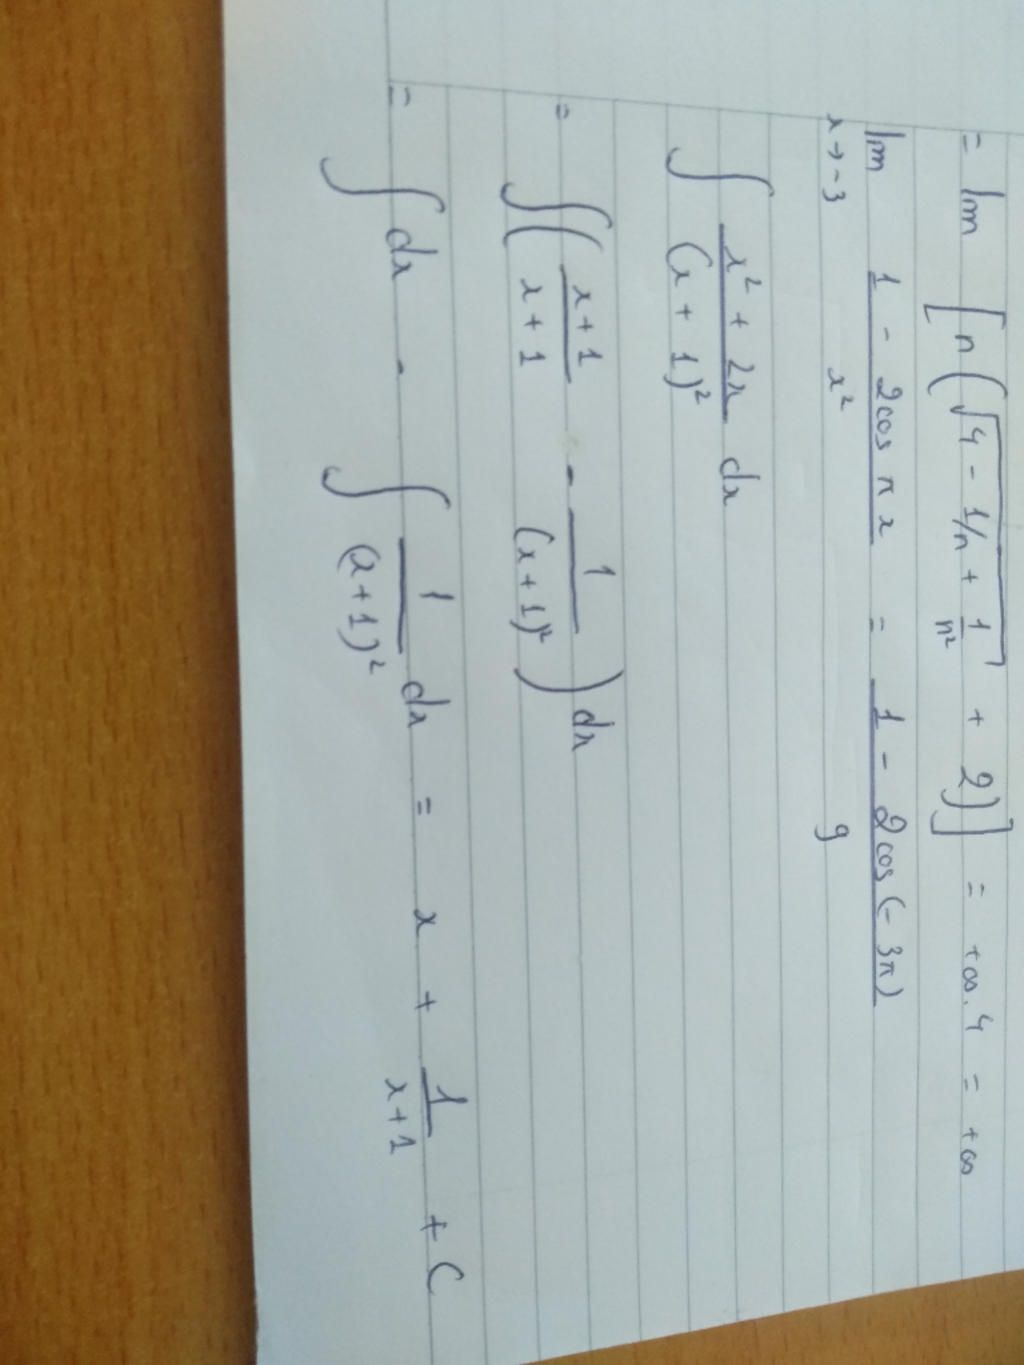 = lim [n(√4 - 1/n + 1/n² + 2)] = +∞.4 = +∞
lim x→-3 1 - 2cos πx / x² = 1 - 2cos(-3π) / 9
∫ x² + 2x / (x + 1)² dx
= ∫( x+1 / x+1 - 1 / (x+1)² ) dx
= ∫ dx - ∫ 1 / (x+1)² dx = x + 1 / x+1 + C